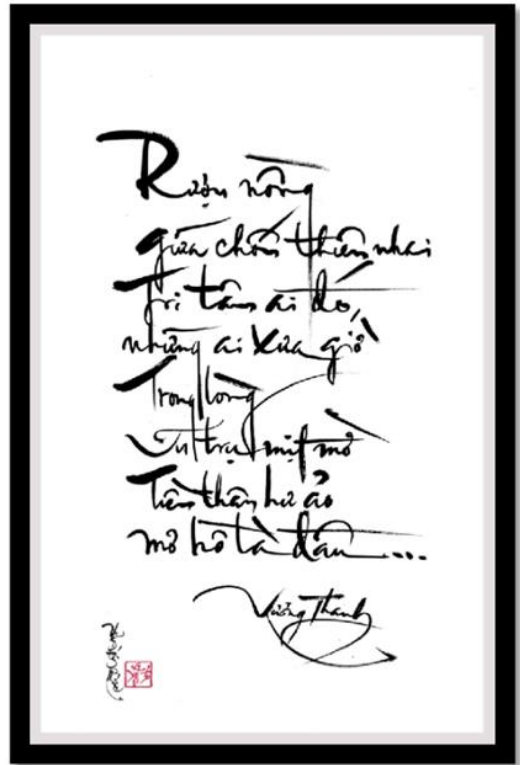 Rượu nồng
giữa chốn thiên nhai
Tri tâm ai đó,
những ai xưa giờ
Trong lòng
Vũ trụ mịt mờ
Tiền thân hư ảo
mơ hồ là đâu ....
Vương Thanh